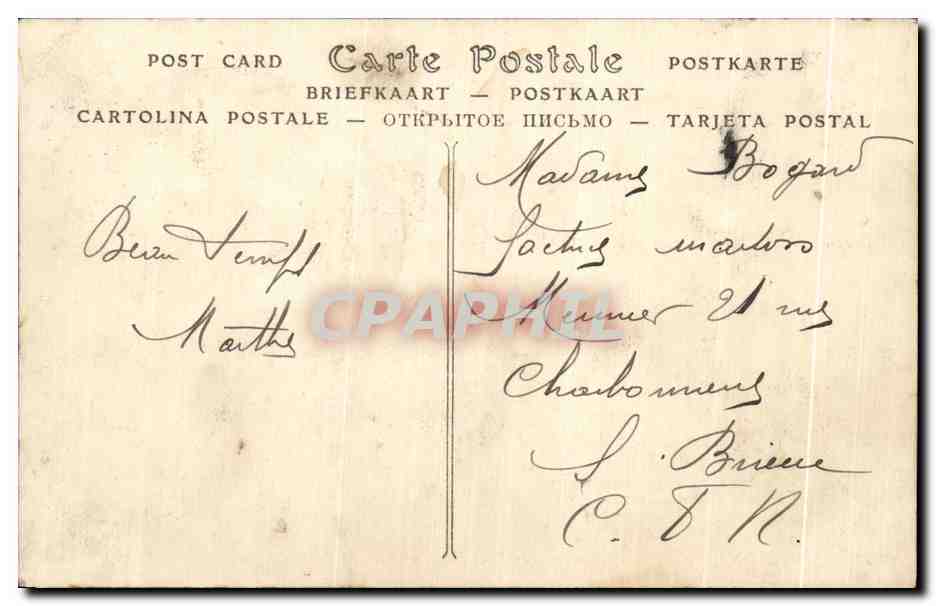 POST CARD Carte Postale POSTKARTE
BRIEFKAART — POSTKAART
CARTOLINA POSTALE — ОТКРЫТОЕ ПИСЬМО — TARJETA POSTAL
Beau temps
Marthe
Madame Bogard
Meunier 21 rue
Charbonnerie
S. Brieuc
C. D N.
CPAPHIL